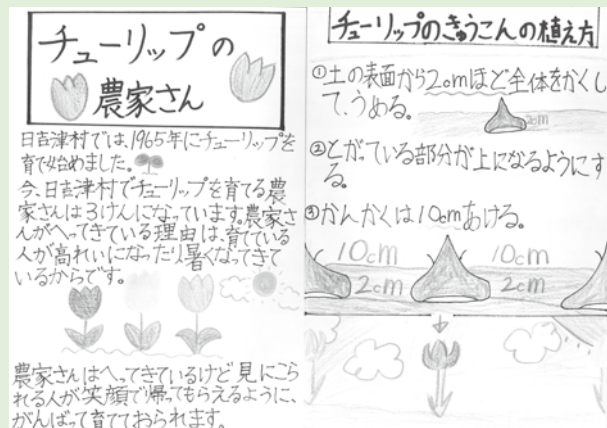 チューリップの
農家さん
日吉津村では、1965年にチューリップを
育て始めました。
今、日吉津村でチューリップを育てる農
家さんは3けんになっています。農家さ
んがへってきている理由は、育てている
人が高れいになったり暑くなってきて
いるからです。
農家さんはへってきているけど見にこら
れる人が笑顔で帰ってもらえるように、
がんばって育てておられます。
チューリップのきゅうこんの植え方
①土の表面から2cmほど全体をかくし
て、うめる。
2cm
②とがっている部分が上になるようにす
る。
③かんかくは10cmあける。
10cm 10cm
2cm 2cm